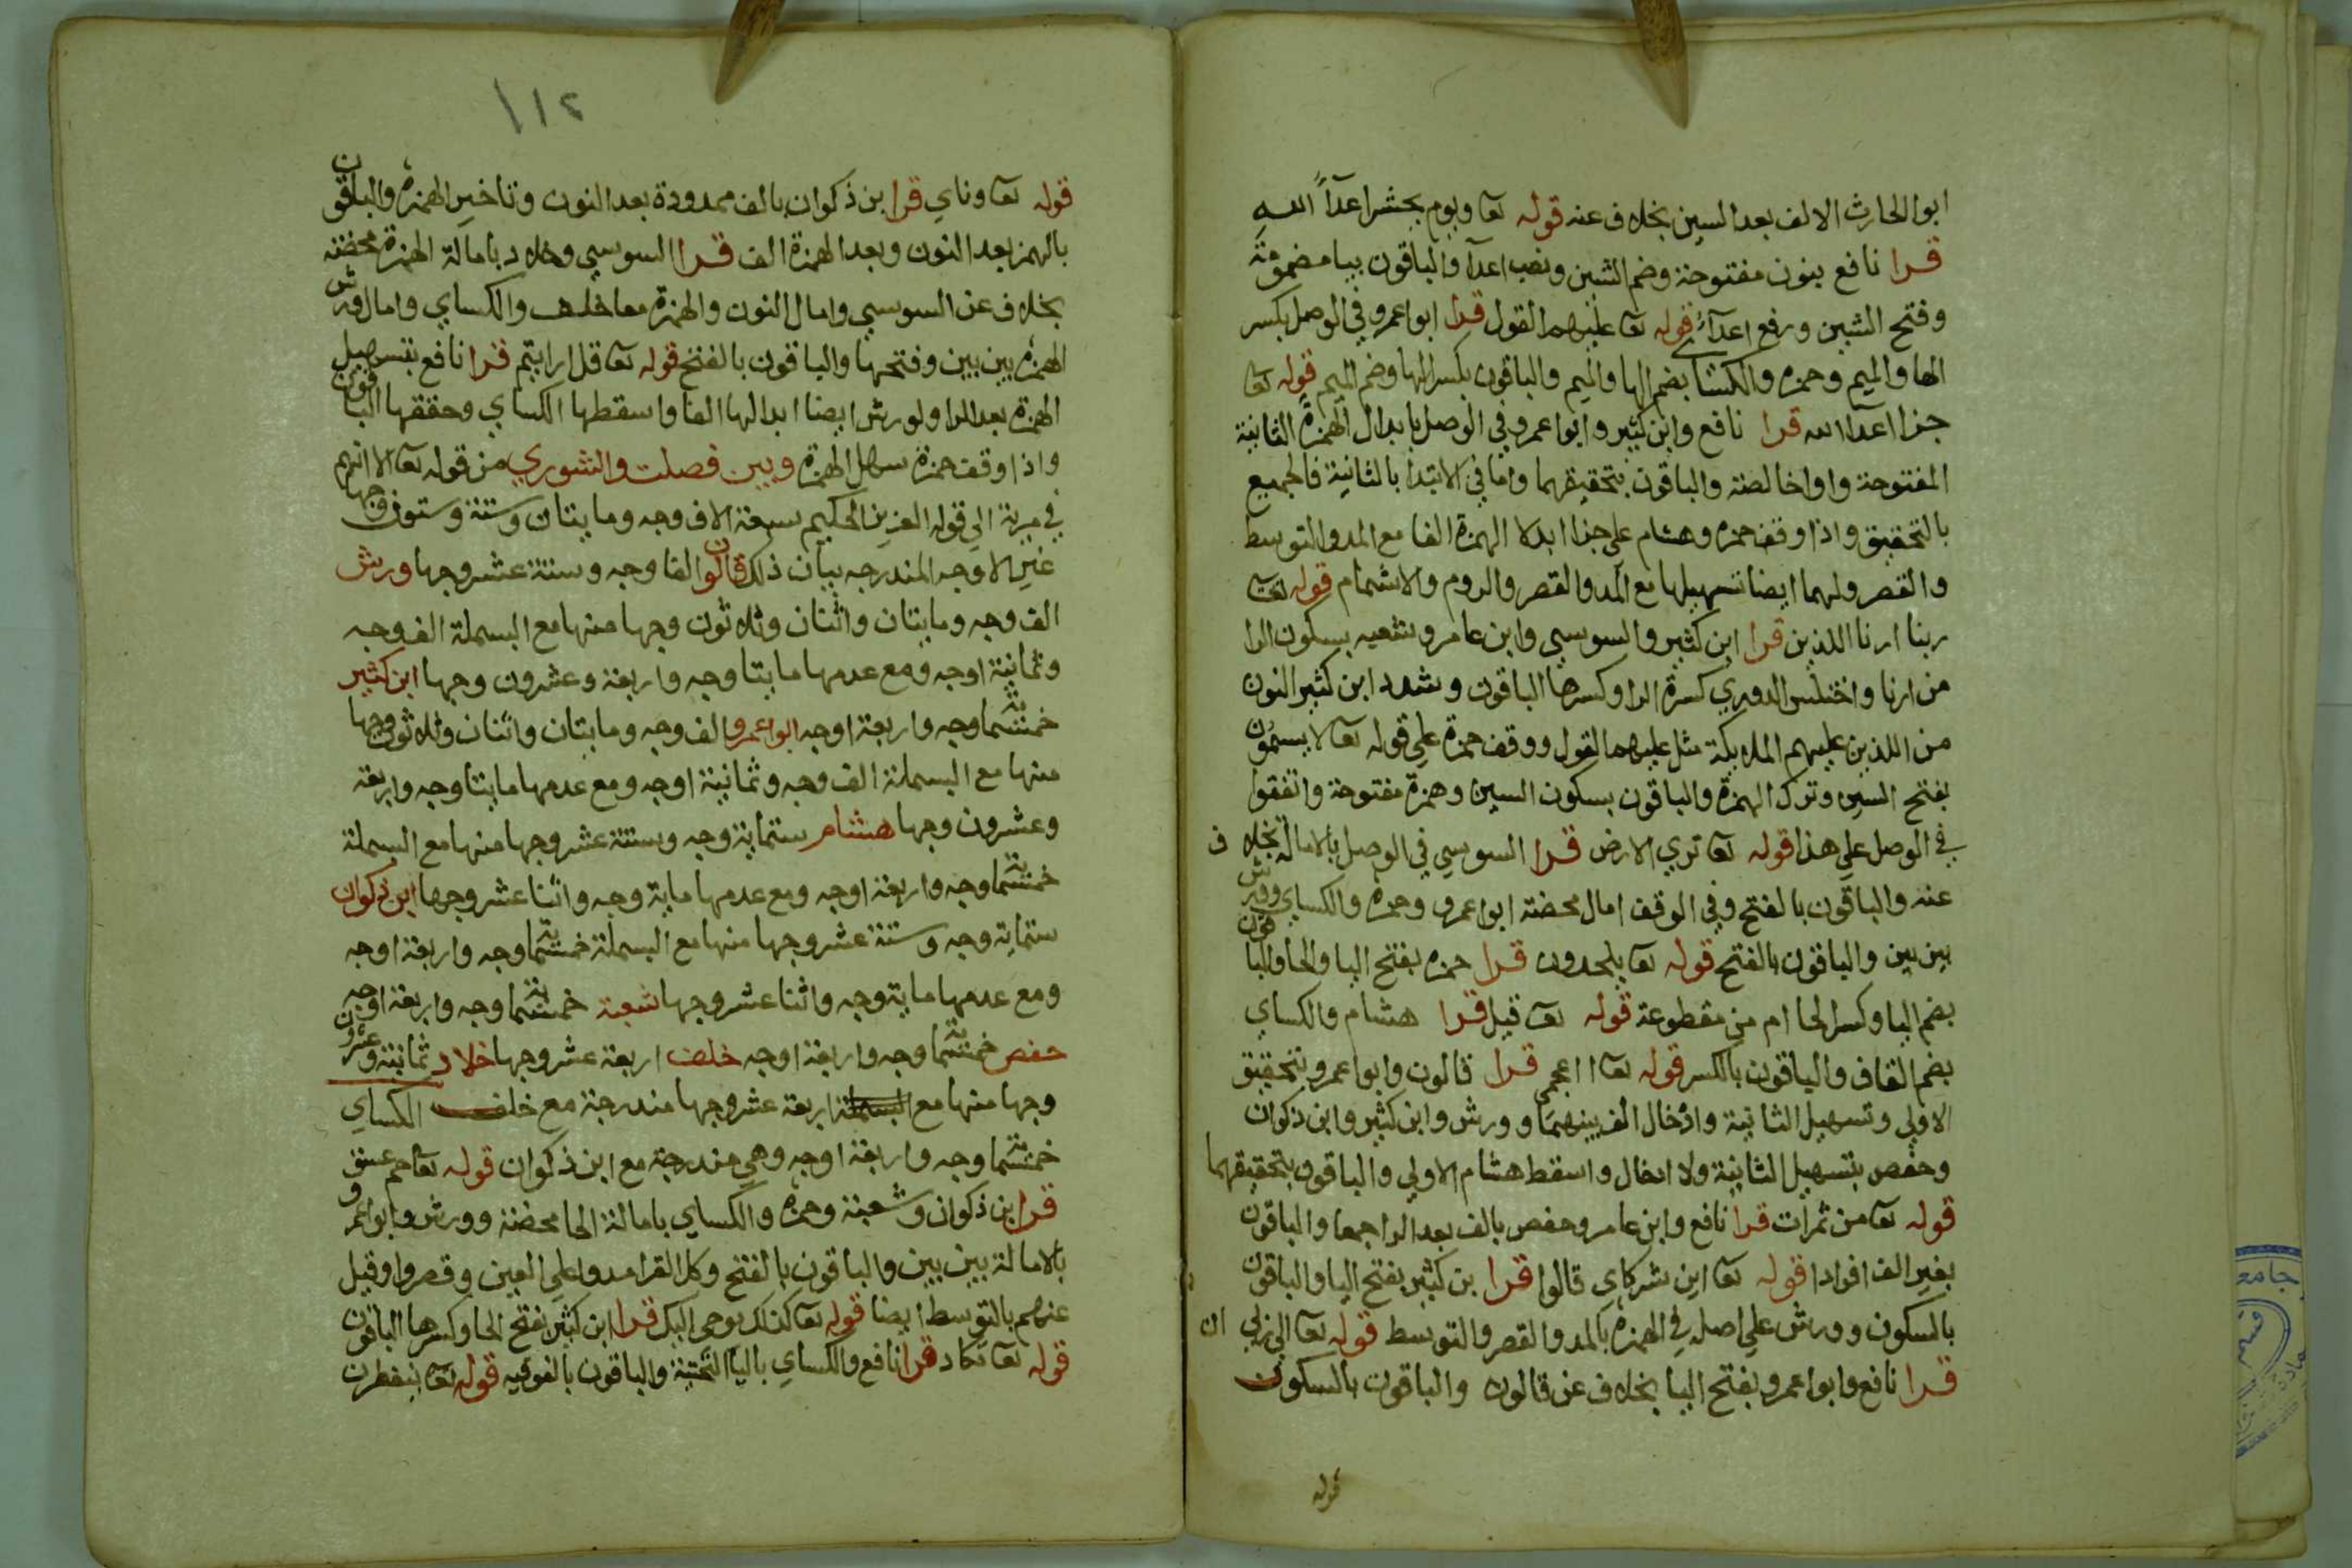 ابوا لحارث الالف بعد السين بخلاف عنه قوله تعا ويوم يحشر اعدآ الله
قرا نافع بنون مفتوحة وضم الشين ونصب اعدآ والباقون بيا مضمومة
وفتح الشين ورفع اعدآءُ قوله تعا عليهم القول قرا ابوا عمرو في الوصل بكسر
الها والميم وحمزه والكسا بضم الها والميم والباقون بكسر الها وضم الميم قوله تعا
جزا اعدآ الله قرا نافع وابن كثير وابوا عمرو في الوصل بابدال الهمزة الثانية
المفتوحة واوا خالصة والباقون بتحقيقهما واما في الابتدا بالثانية فالجميع
بالتحقيق واذا وقف حمزه وهشام على جزا ابدلا الهمزة الفا مع المد والتوسط
والقصر ولهما ايضا تسهيلها مع المد والقصر والروم والاشمام قوله تعا
ربنا ارنا اللذين قرا ابن كثير والسوسي وابن عامر وشعبه بسكون الرا
من ارنا واختلس الدوري كسرة الرا وكسرها الباقون وشدد ابن كثير النون
من اللذين عليهم الملايكة مثل عليهم القول ووقف حمزة على قوله تعا لا يسمون
بفتح السين وترك الهمزة والباقون بسكون السين وهمزة مفتوحة واتفقوا
في الوصل على هذا قوله تعا تري الارض قرا السوسي في الوصل بالامالة بخلاف
عنه والباقون بالفتح وفي الوقف امال محضة ابوا عمرو وحمزه والكساي وورش
بين بين والباقون بالفتح قوله تعا يلحدون قرا حمزه بفتح اليا والحا والباقون
بضم اليا وكسر الحا ام من مقطوعة قوله تعا قيل قرا هشام والكساي
بضم القاف والباقون بالكسر قوله تعا ااعجمي قرا قالون وابوا عمرو بتحقيق
الاولي وتسهيل الثانية وادخال الف بينهما وورش وابن كثير وابن ذكوان
وحفص بتسهيل الثانية ولا ادخال واسقط هشام الاولي والباقون بتحقيقهما
قوله تعا من ثمرات قرا نافع وابن عامر وحفص بالف بعد الرا جمعا والباقون
بغير الف افرادا قوله تعا اين شركاي قالوا قرا بن كثير بفتح اليا والباقون
بالسكون وورش علي اصله في الهمزه بالمد والقصر والتوسط قوله تعا الي ربي ان
قرا نافع وابوا عمرو بفتح اليا بخلاف عن قالون والباقون بالسكون
قوله
١١٢
قوله تعا وناي قرا بن ذكوان بالف ممدودة بعد النون وتاخير الهمزه والباقون
بالهمز بعد النون وبعد الهمزة الف قرا السوسي وخلاد بامالة الهمزة محضة
بخلاف عن السوسي وامال النون والهمزة معا خلف والكساي وامال ورش
الهمزه بين بين وفتحها والباقون بالفتح قوله تعا قل ارايتم قرا نافع بتسهيل
الهمزة بعد الرا ولورش ايضا ابدالها الفا واسقطها الكساي وحققها الباقون
واذا وقف حمزة سهل الهمزة وبين فصلت والشوري من قوله تعا الا انهم
في مرية الي قوله العزيز الحكيم سبعة الاف وجه ومايتان وستة وستون وجها
غير الاوجه المندرجه بيان ذلك قالون الفا وجه وستة عشر وجها ورش
الف وجه ومايتان واثنان وثلاثون وجها منها مع البسملة الف وجه
وثمانية اوجه ومع عدمها مايتا وجه واربعة وعشرون وجها ابن كثير
خمسماية وجه واربعة اوجه ابوا عمرو الف وجه ومايتان واثنان وثلاثون وجها
منها مع البسملة الف وجه وثمانية اوجه ومع عدمها مايتا وجه واربعة
وعشرون وجها هشام ستماية وجه وستة عشر وجها منها مع البسملة
خمسماية وجه واربعة اوجه ومع عدمها ماية وجه واثنا عشر وجها ابن ذكوان
ستماية وجه وستة عشر وجها منها مع البسملة خمسماية وجه واربعة اوجه
ومع عدمها ماية وجه واثنا عشر وجها شعبة خمسماية وجه واربعة اوجه
حفص خمسماية وجه واربعة اوجه خلف اربعة عشر وجها خلاد ثمانية وعشرون
وجها منها مع البسملة اربعة عشر وجها مندرجة مع خلف الكساي
خمسماية وجه واربعة اوجه وهي مندرجة مع ابن ذكوان قوله تعا حم عسق
قرا بن ذكوان وشعبة وحمزه والكساي بامالة الحا محضة وورش وابوا عمرو
بالامالة بين بين والباقون بالفتح وكل القرا مدوا علي العين وقصروا وقيل
عنهم بالتوسط ايضا قوله تعا كذلك يوحي اليك قرا ابن كثير بفتح الحا وكسرها الباقون
قوله تعا تكاد قرا نافع والكساي باليا التحتية والباقون بالفوقيه قوله تعا ينفطرن